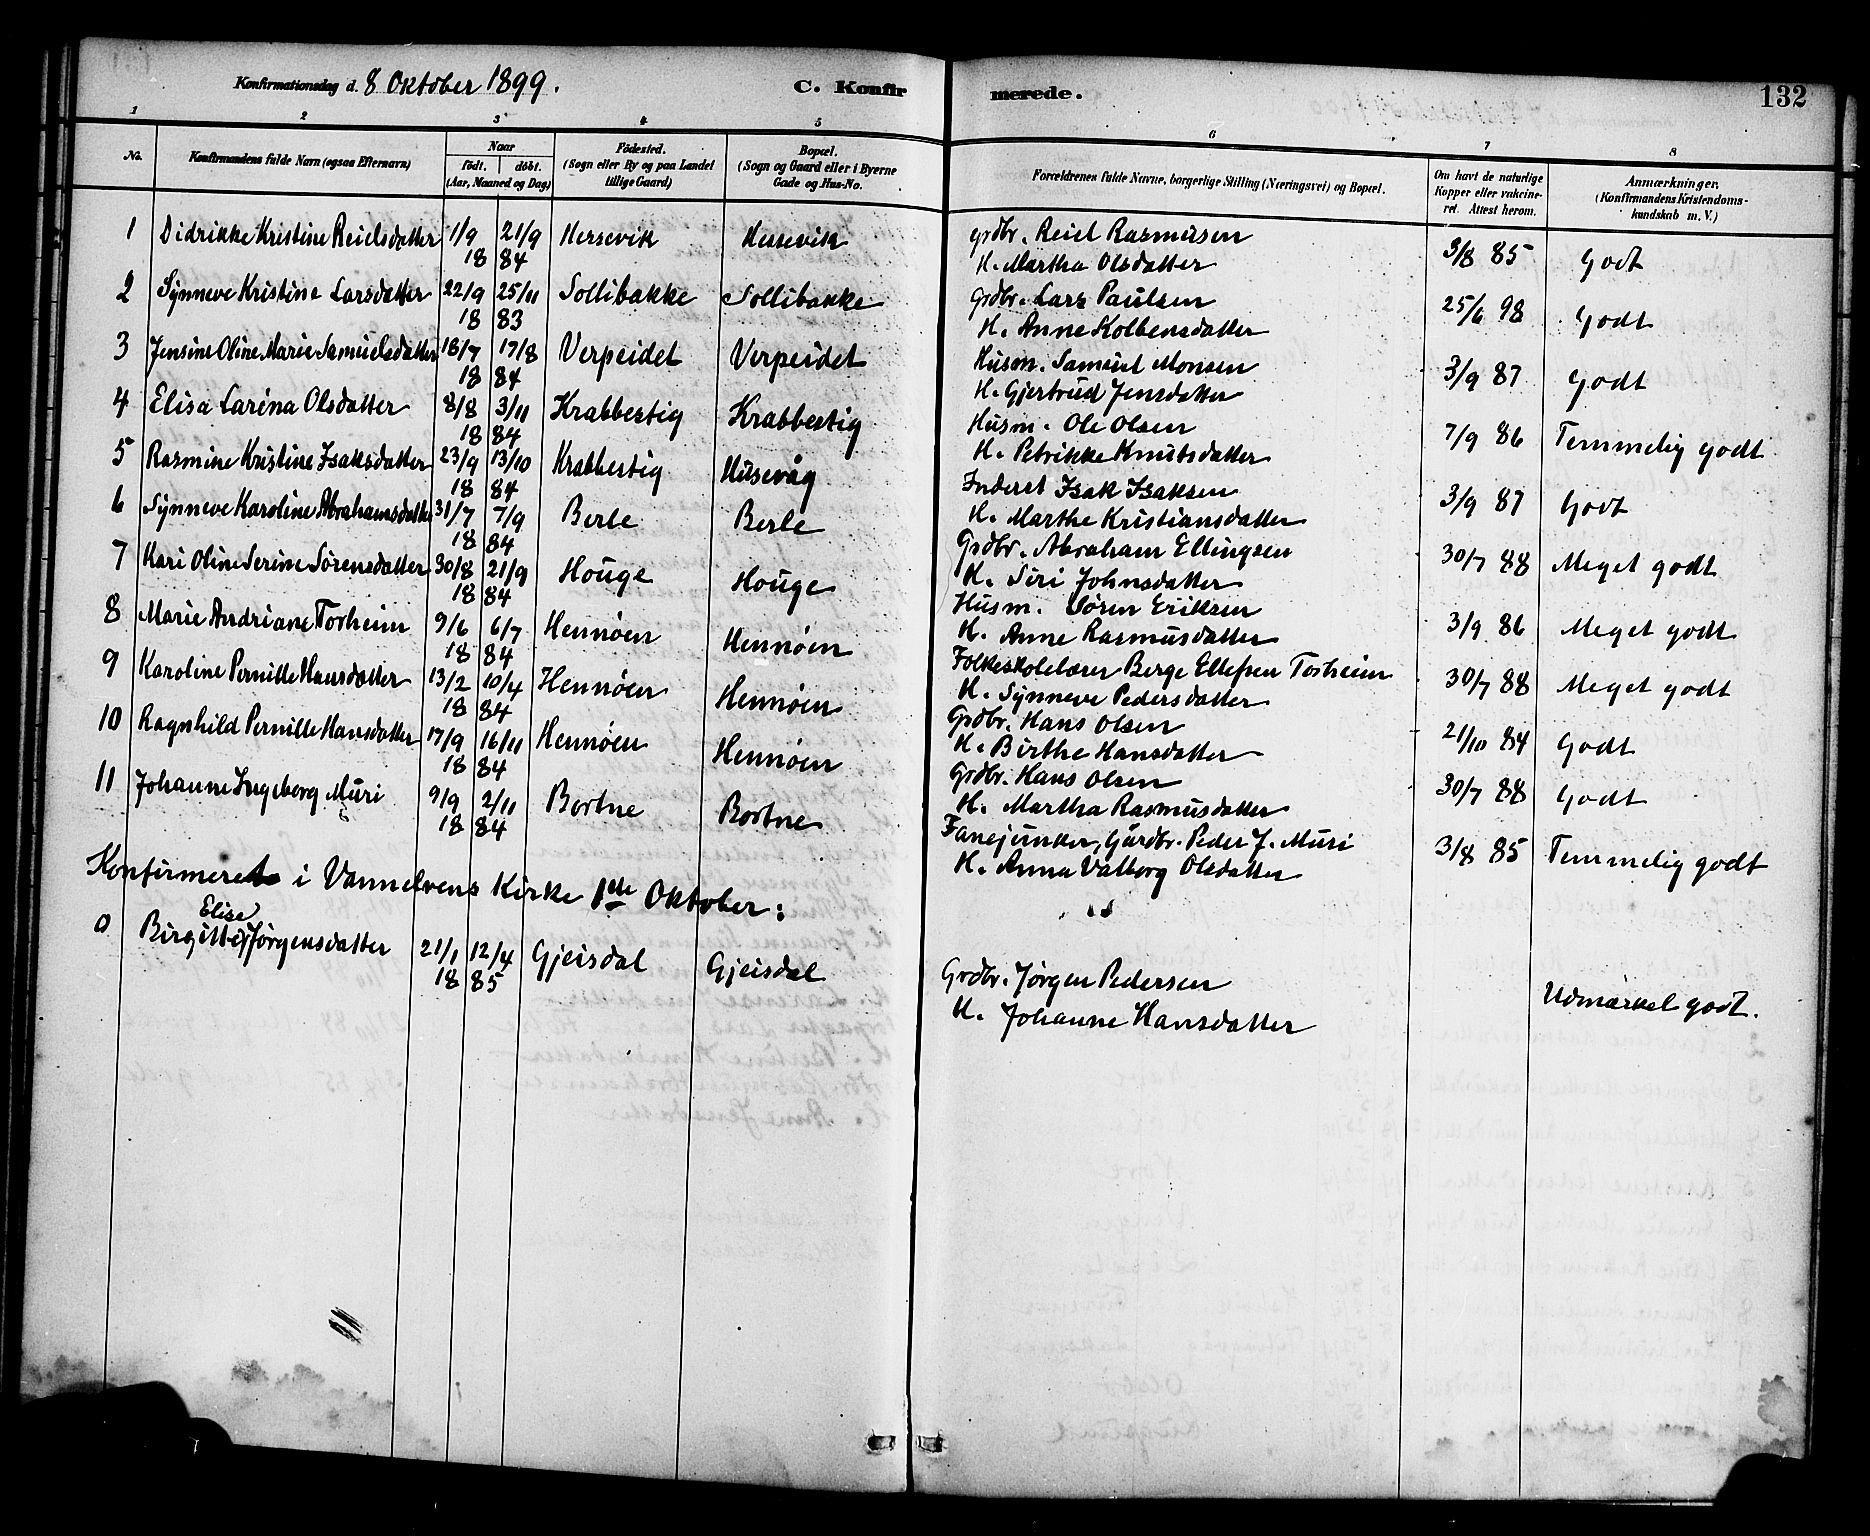 Konfirmationsdag d. 8 Oktober 1899.
C. Konfirmerede.
132
1 2 3 4 5 6 7 8
No.
Konfirmandens fulde Navn (ogsaa Efternavn)
Naar
födt. döbt.
(Aar, Maaned og Dag)
Födested.
(Sogn eller By og paa Landet
tillige Gaard)
Bopæl.
(Sogn og Gaard eller i Byerne
Gade og Hus-No.
Forældrenes fulde Navne, borgerlige Stilling (Næringsvei) og Bopæl.
Om havt de naturlige
Kopper eller vakcine-
ret. Attest herom.
Anmærkninger.
(Konfirmandens Kristendoms-
kundskab m. V.)
1 Didrikke Kristine Reielsdatter 1/9 21/9 Hersevik Hessevik grdbr. Reiel Rasmusen 3/8 85 Godt
18 84 H. Martha Olsdatter
2 Synneve Kristine Larsdatter 22/9 25/11 Sollibakke Sollibakke Grdbr. Lars Paulsen 25/6 98 Godt
18 83 H. Anne Kolbensdatter
3 Jensine Oline Marie Samuelsdatter 18/7 17/8 Verpeidet Verpeidet Husm. Samuel Monsen 3/9 87 Godt
18 84 H. Gjertrud Jensdatter
4 Elisa Larina Olsdatter 8/8 3/11 Krabbestig Krabbestig Husm. Ole Olsen 7/9 86 Temmelig godt
18 84 H. Petrikke Knutsdatter
5 Rasmine Kristine Isaksdatter 23/9 13/10 Krabbestig Husevåg Inderst Isak Isaksen 3/9 87 Godt
18 84 H. Marthe Kristiansdatter
6 Synneve Karoline Abrahamsdatter 31/7 7/9 Berle Berle Grdbr. Abraham Ellingsen 30/7 88 Meget godt
18 84 H. Siri Johnsdatter
7 Kari Oline Serine Sørensdatter 30/8 21/9 Houge Houge Husm. Søren Eriksen 3/9 86 Meget godt
18 84 H. Anne Rasmusdatter
8 Marie Andriane Torheim 9/6 6/7 Hennøen Hennøen Folkeskolelærer Berge Ellefsen Torheim 30/7 88 Meget godt
18 84 H. Synneve Pedersdatter
9 Karoline Pernille Hansdatter 13/2 10/4 Hennøen Hennøen Grdbr. Hans Olsen 21/10 84 Godt
18 84 H. Birthe Hansdatter
10 Ragnhild Pernille Hansdatter 17/9 16/11 Hennøen Hennøen Grdbr. Hans Olsen 30/7 88 Godt
18 84 H. Martha Rasmusdatter
11 Johanne Ingeborg Muri 9/9 2/11 Bortne Bortne Fanejunker, Gårdbr. Peder J. Muri 3/8 85 Temmelig godt
18 84 H. Anna Valborg Olsdatter
Konfirmeret i Vannelvens Kirke 1ste Oktober:
Elise
0 Birgitte Jørgensdatter 21/1 12/4 Gjeisdal Gjeisdal Grdbr. Jørgen Pedersen Udmærket godt.
18 85 H. Johanne Hansdatter